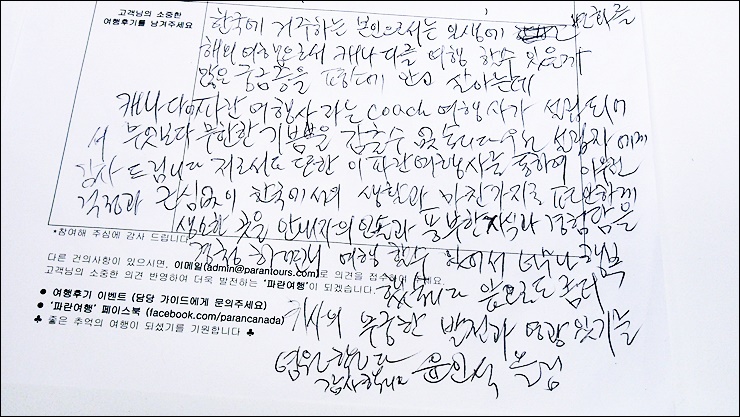 고객님의 소중한
여행후기를 남겨주세요
한국에 거주하는 본인으로서는 인생에 변화를
해외 여행으로서 캐나다를 여행 할수 있을까
많은 궁금증을 가슴에 안고 살아는데
캐나다 파란여행사 라는 coach 여행사가 선정되어
서 무엇보다 무한한 기쁨을 감출수 없습니다 우선 선정자에게
감사 드립니다 저로서도 또한 이 파란여행사를 통하여 아무런
걱정과 근심없이 한국에서의 생활과 마찬가지로 편안하게
생소한 곳을 안내자의 인솔과 풍부한 지식과 경험담을
*참여해 주심에 감사 드립니다
경청 하면서 여행 할수 있어서 너무나 행복
다른 건의사항이 있으시면, 이메일(admin@parantours.com)로 의견을 접수 세요.
고객님의 소중한 의견 반영하여 더욱 발전하는 '파란여행'이 되겠습니다.
했습니다 앞으로도
● 여행후기 이벤트 (담당 가이드에게 문의주세요)
● '파란여행' 페이스북 (facebook.com/parancanada)
귀사의 무궁한 발전과 영광 있기를
♣ 좋은 추억의 여행이 되셨기를 기원합니다 ♣
염원합니다
감사합니다 윤인식 드림